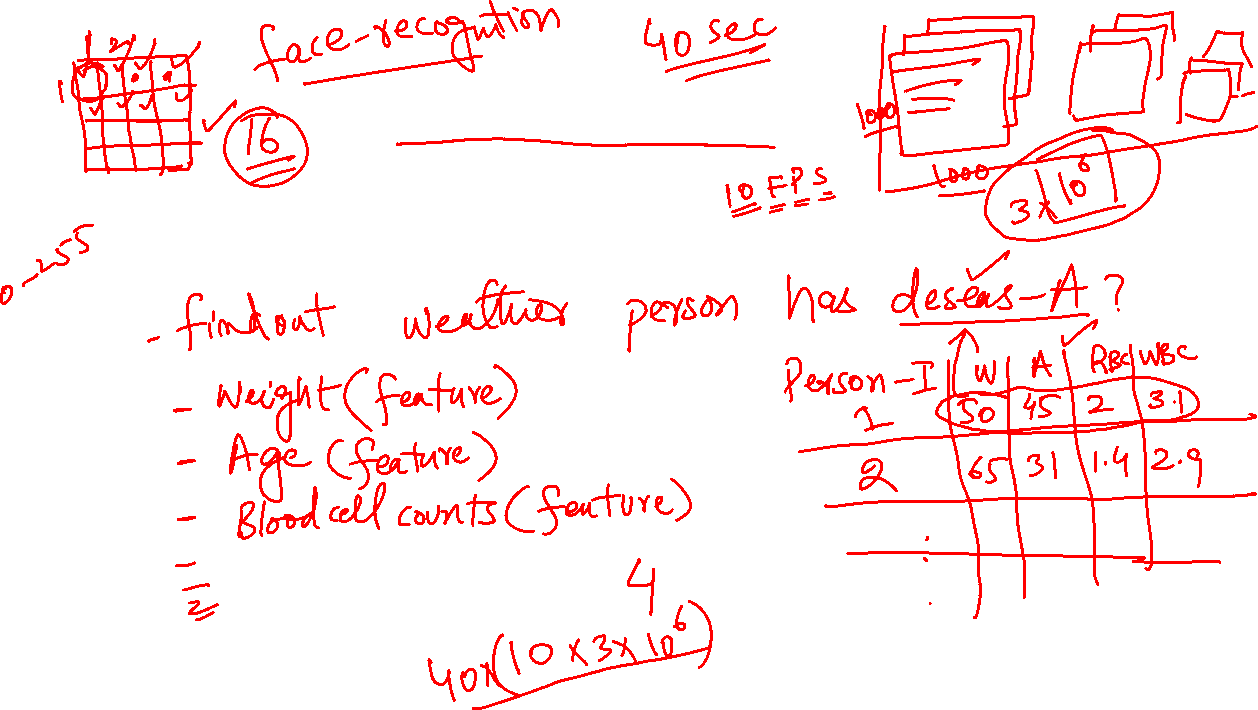 face-recognition 40 sec
1 2
1
16
1000
1000
3 x 10^6
10 FPS
0-255
- findout weather person has deseas-A ?
- Weight (feature)
- Age (feature)
- Blood cell counts (feature)
-
Person-I W A RBC WBC
1 50 45 2 3.1
2 65 31 1.4 2.9
4
40x(10 x 3 x 10^6)